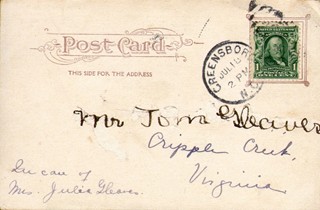 Post Card
THIS SIDE FOR THE ADDRESS
GREENSBORO
JUL
2 PM
N.C.
Mr Tom Gleaves
Cripple Creek,
Virginia
In car of
Mrs. Julia Gleaves.